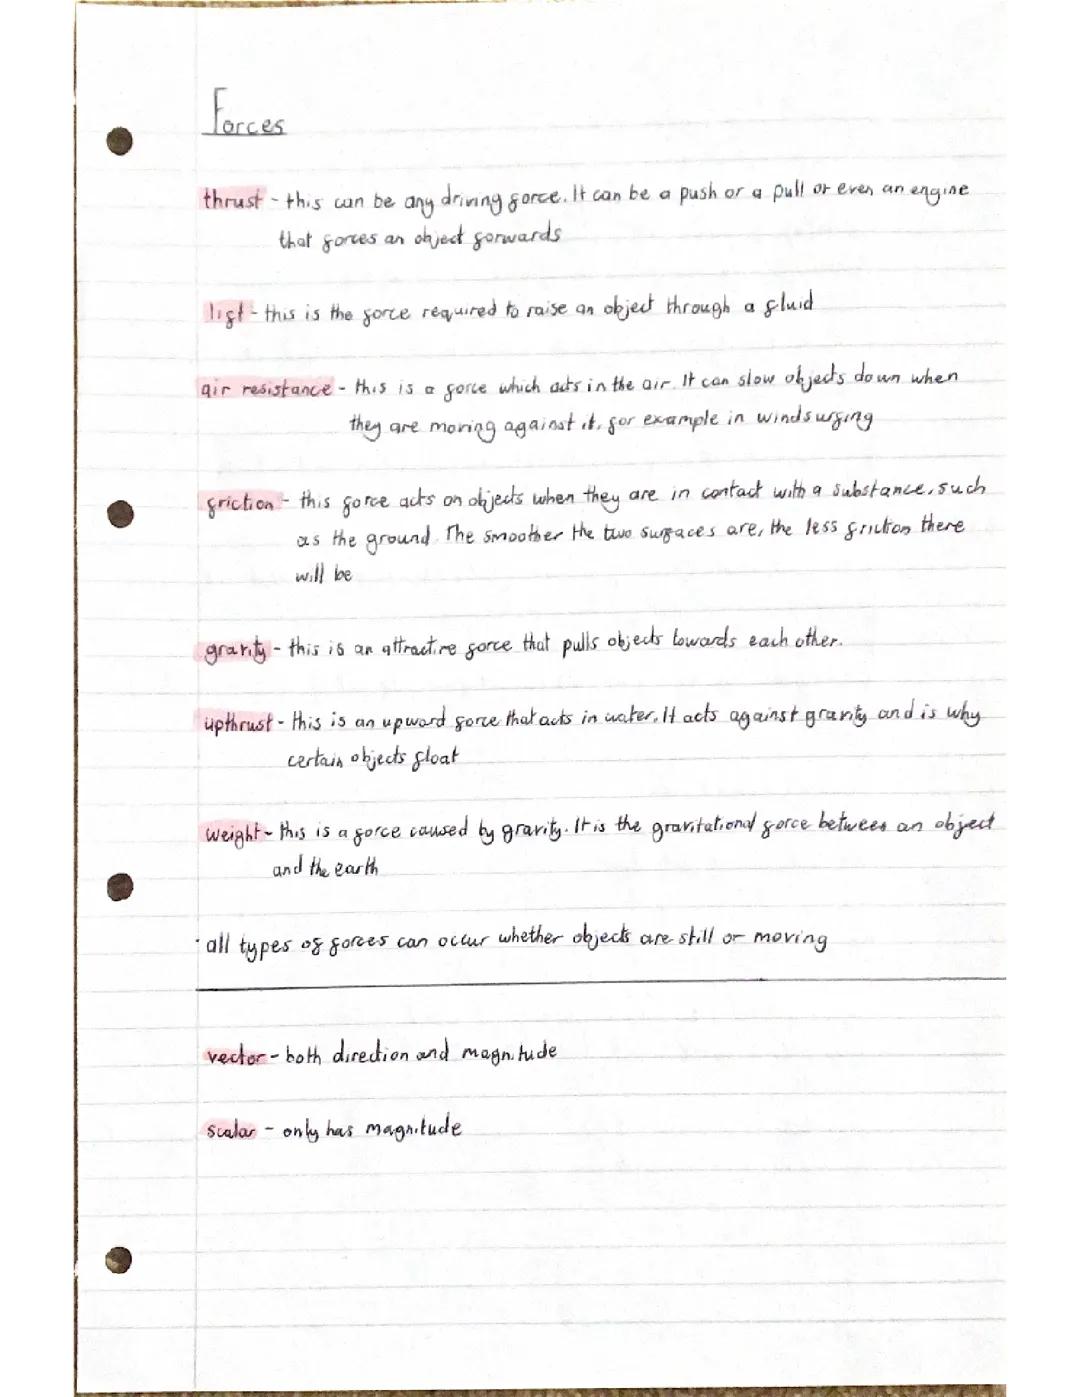 Forces
thrust - this can be any driving force. It can be a push or a pull or even an engine
that forces an object forwards
lift - this is the force required to raise an object through a fluid
air resistance - this is a force which acts in the air. It can slow objects down when
they are moving against it, for example in windsurfing
friction - this force acts on objects when they are in contact with a substance, such
as the ground. The smoother the two surfaces are, the less friction there
will be
gravity - this is an attractive force that pulls objects towards each other.
upthrust - this is an upward force that acts in water. It acts against gravity and is why
certain objects float
weight - this is a force caused by gravity. It is the gravitational force between an object
and the earth
· all types of forces can occur whether objects are still or moving
vector - both direction and magnitude
scalar - only has magnitude